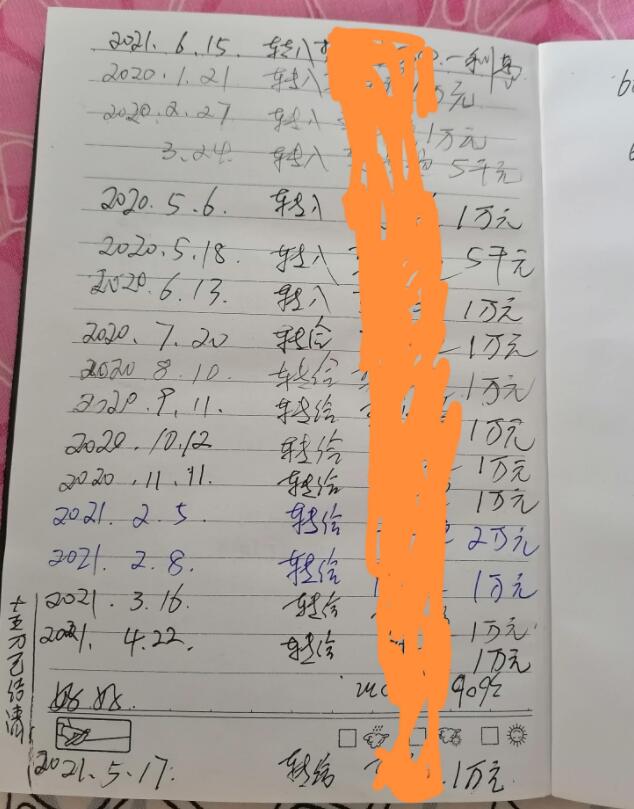 2021.6.15. 转入 一利息
2020.1.21 转入 1万元
2020.2.27 转入 1万元
3.24. 转入 5千元
2020.5.6. 转入 1万元
2020.5.18. 转入 5千元
2020.6.13. 转入 1万元
2020.7.20 转给 1万元
2020 8.10. 转给 1万元
2020.9.11. 转给 1万元
2020.10.12 转给 1万元
2020.11.11. 转给 1万元
2021.2.5. 转给 2万元
2021.2.8. 转给 1万元
2021.3.16. 转给 1万元
2021.4.22. 转给 1万元
好好
2021.5.17. 转给 1万元
十五万已结清